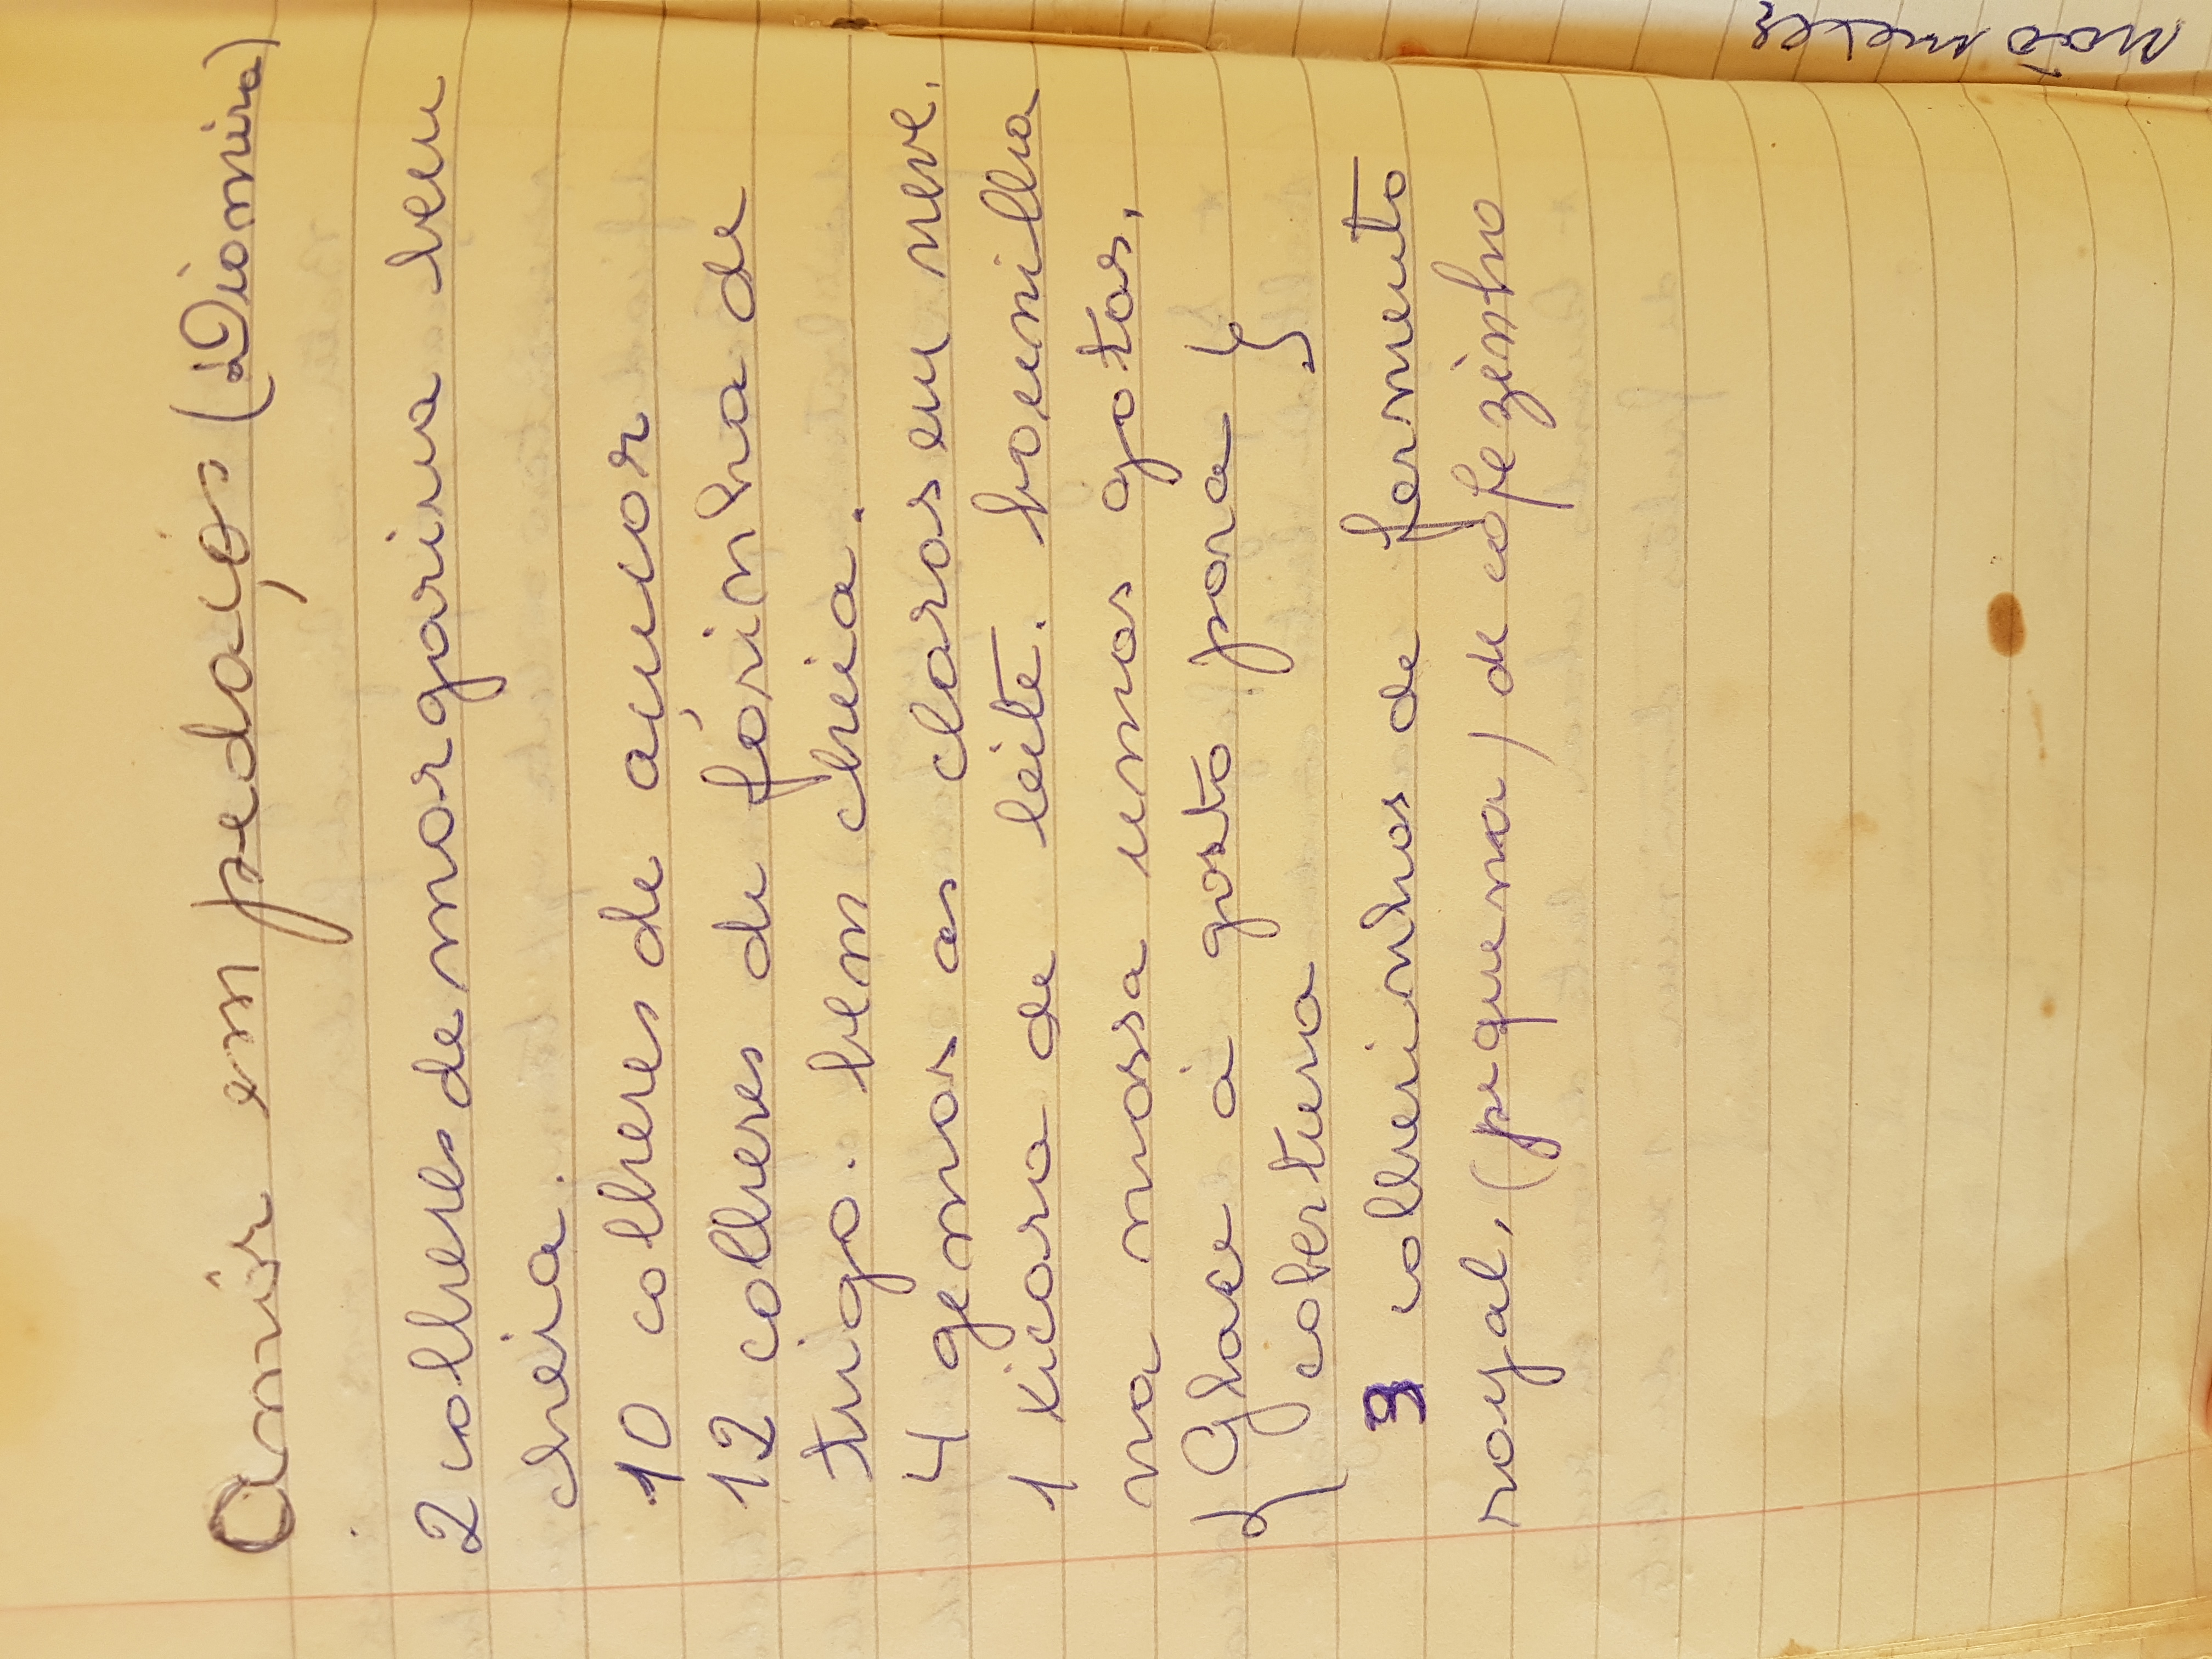 Amôr em pedaços (Diomira)
2 colheres de margarina bem
cheia.
10 colheres de açucar
12 colheres de farinha de
trigo. bem cheia.
4 gemas as claras em neve.
1 xicara de leite. baunilha
na massa umas gotas.
{ Glace à gosto para }
cobertura
3 colherinhas de fermento
royal, (pequena) de cafezinho
não mexer